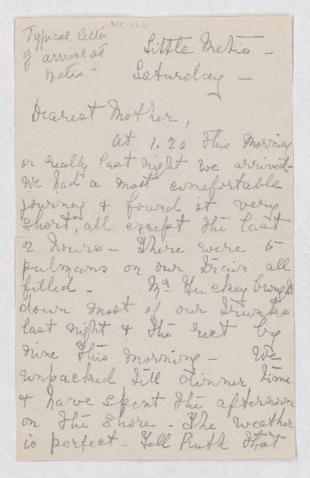 Typical letter
of arrival at
Metis -
Little Metis -
Saturday -
Dearest Mother,
At 1.20 this morning
or really last night we arrived -
We had a most comfortable
journey & found it very
short, all except the last
2 hours - There were 5
pulmans on our train all
filled - Mr Tuckey brought
down most of our trunks
last night & the rest by
nine this morning - We
unpacked till dinner time
& have spent the afternoon
on the shore. The weather
is perfect - Tell Ruth that